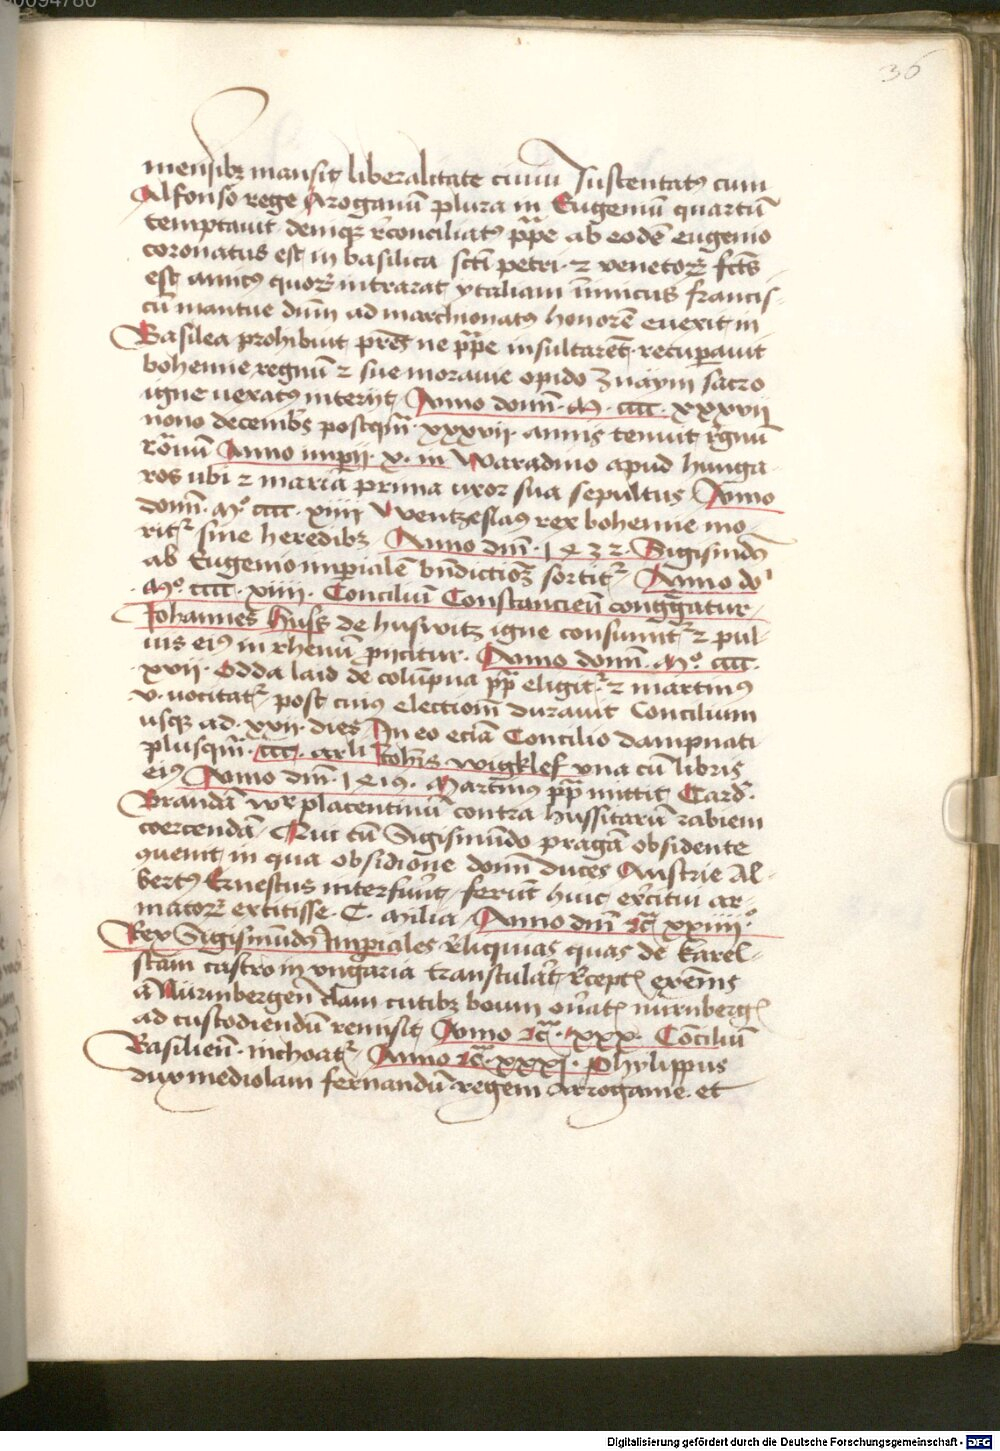 36
mensibꝫ mansit liberalitate ciuiū Sustentatꝰ cum
Alfonso rege Aroganū plura in Eugeniū quartū
temptauit deniqꝫ rͨonciliatꝰ ꝑpe ab eodē eugenio
coronatus est in basilica scti petri · ⁊ venetorꝝ fctūs
est amicꝰ quorꝝ intrarat ytaliam inimicus francis-
cū mantue dnm̄ ad marchionatꝰ honorē euexit in
Basilea prohibuit pr̄es ne ꝑpe insultarēt recuꝑauit
bohemie regnū ⁊ sue morauie opido Znaym sacro
igne uexatus interijt Anno domī · M · cccc · xxxvij
nono decembr̄s postqm̄ · xxxvij · annis tenuit rͤgnū
Rōnū Anno imꝑii · x · in Waradino apud hunga-
ros ubi ⁊ maria prima uxor sua sepultus Anno
domī · Mº cccc · xiiii Wentzeslaꝰ rex bohemie mo-
ritꝰ sine heredibꝫ Anno dm̄ · 1432 · Sigismūdꝰ
ab Eugenio imꝑialē bn̄dictioꝫ sortitꝰ Anno do
· Mº cccc · xiiii · Conciliū Constancien̄ congꝛegatur
Iohannes Huss de huswitz igne consumitꝰ ⁊ pul-
uis eiꝰ in rhenū ꝓijcitur · Anno domī · Mº cccc ·
xvii · Odda laid de colūpna ꝑp eligitꝰ ⁊ martinꝰ
· v · uocitatꝰ post cuius electionē durauit Concilium
usqꝫ ad · xxvii · dies In eo eciā Concilio dampnati
plusqm̄ · ccc · arli Ioh̄is wigklef vna cū libris
eiꝰ Anno dm̄ · 1419 · Martinꝰ ꝑp mittit Card̄ ·
Brandā placentinū contra hussitarū rabiem
coercendā · Qui cū Sigismūdo pragā obsidente
quenit in qua obsidione domī duces Austrie Al-
bertꝰ Ernestus interfuert̄ ferūt huic exͤrcitui ar-
matorꝝ extitisse · C · milia · Anno dm̄ xxiiii º
Rex Sigismūdꝰ Imꝑiales rͤliquias quas de karel-
stain castro in vngaria transtulert̄ rͤcept exn̄s
a Nürmbergen̄ clam cutibꝫ boum nürnberg
ad custodiendū remisit Anno · xxx · Conciliū
Basilien̄ · inchoatꝰ Anno · xxxj · Phylippus
dux mediolani fernandū regem Arrogame · et
Digitalisierung gefördert durch die Deutsche Forschungsgemeinschaft - DFG